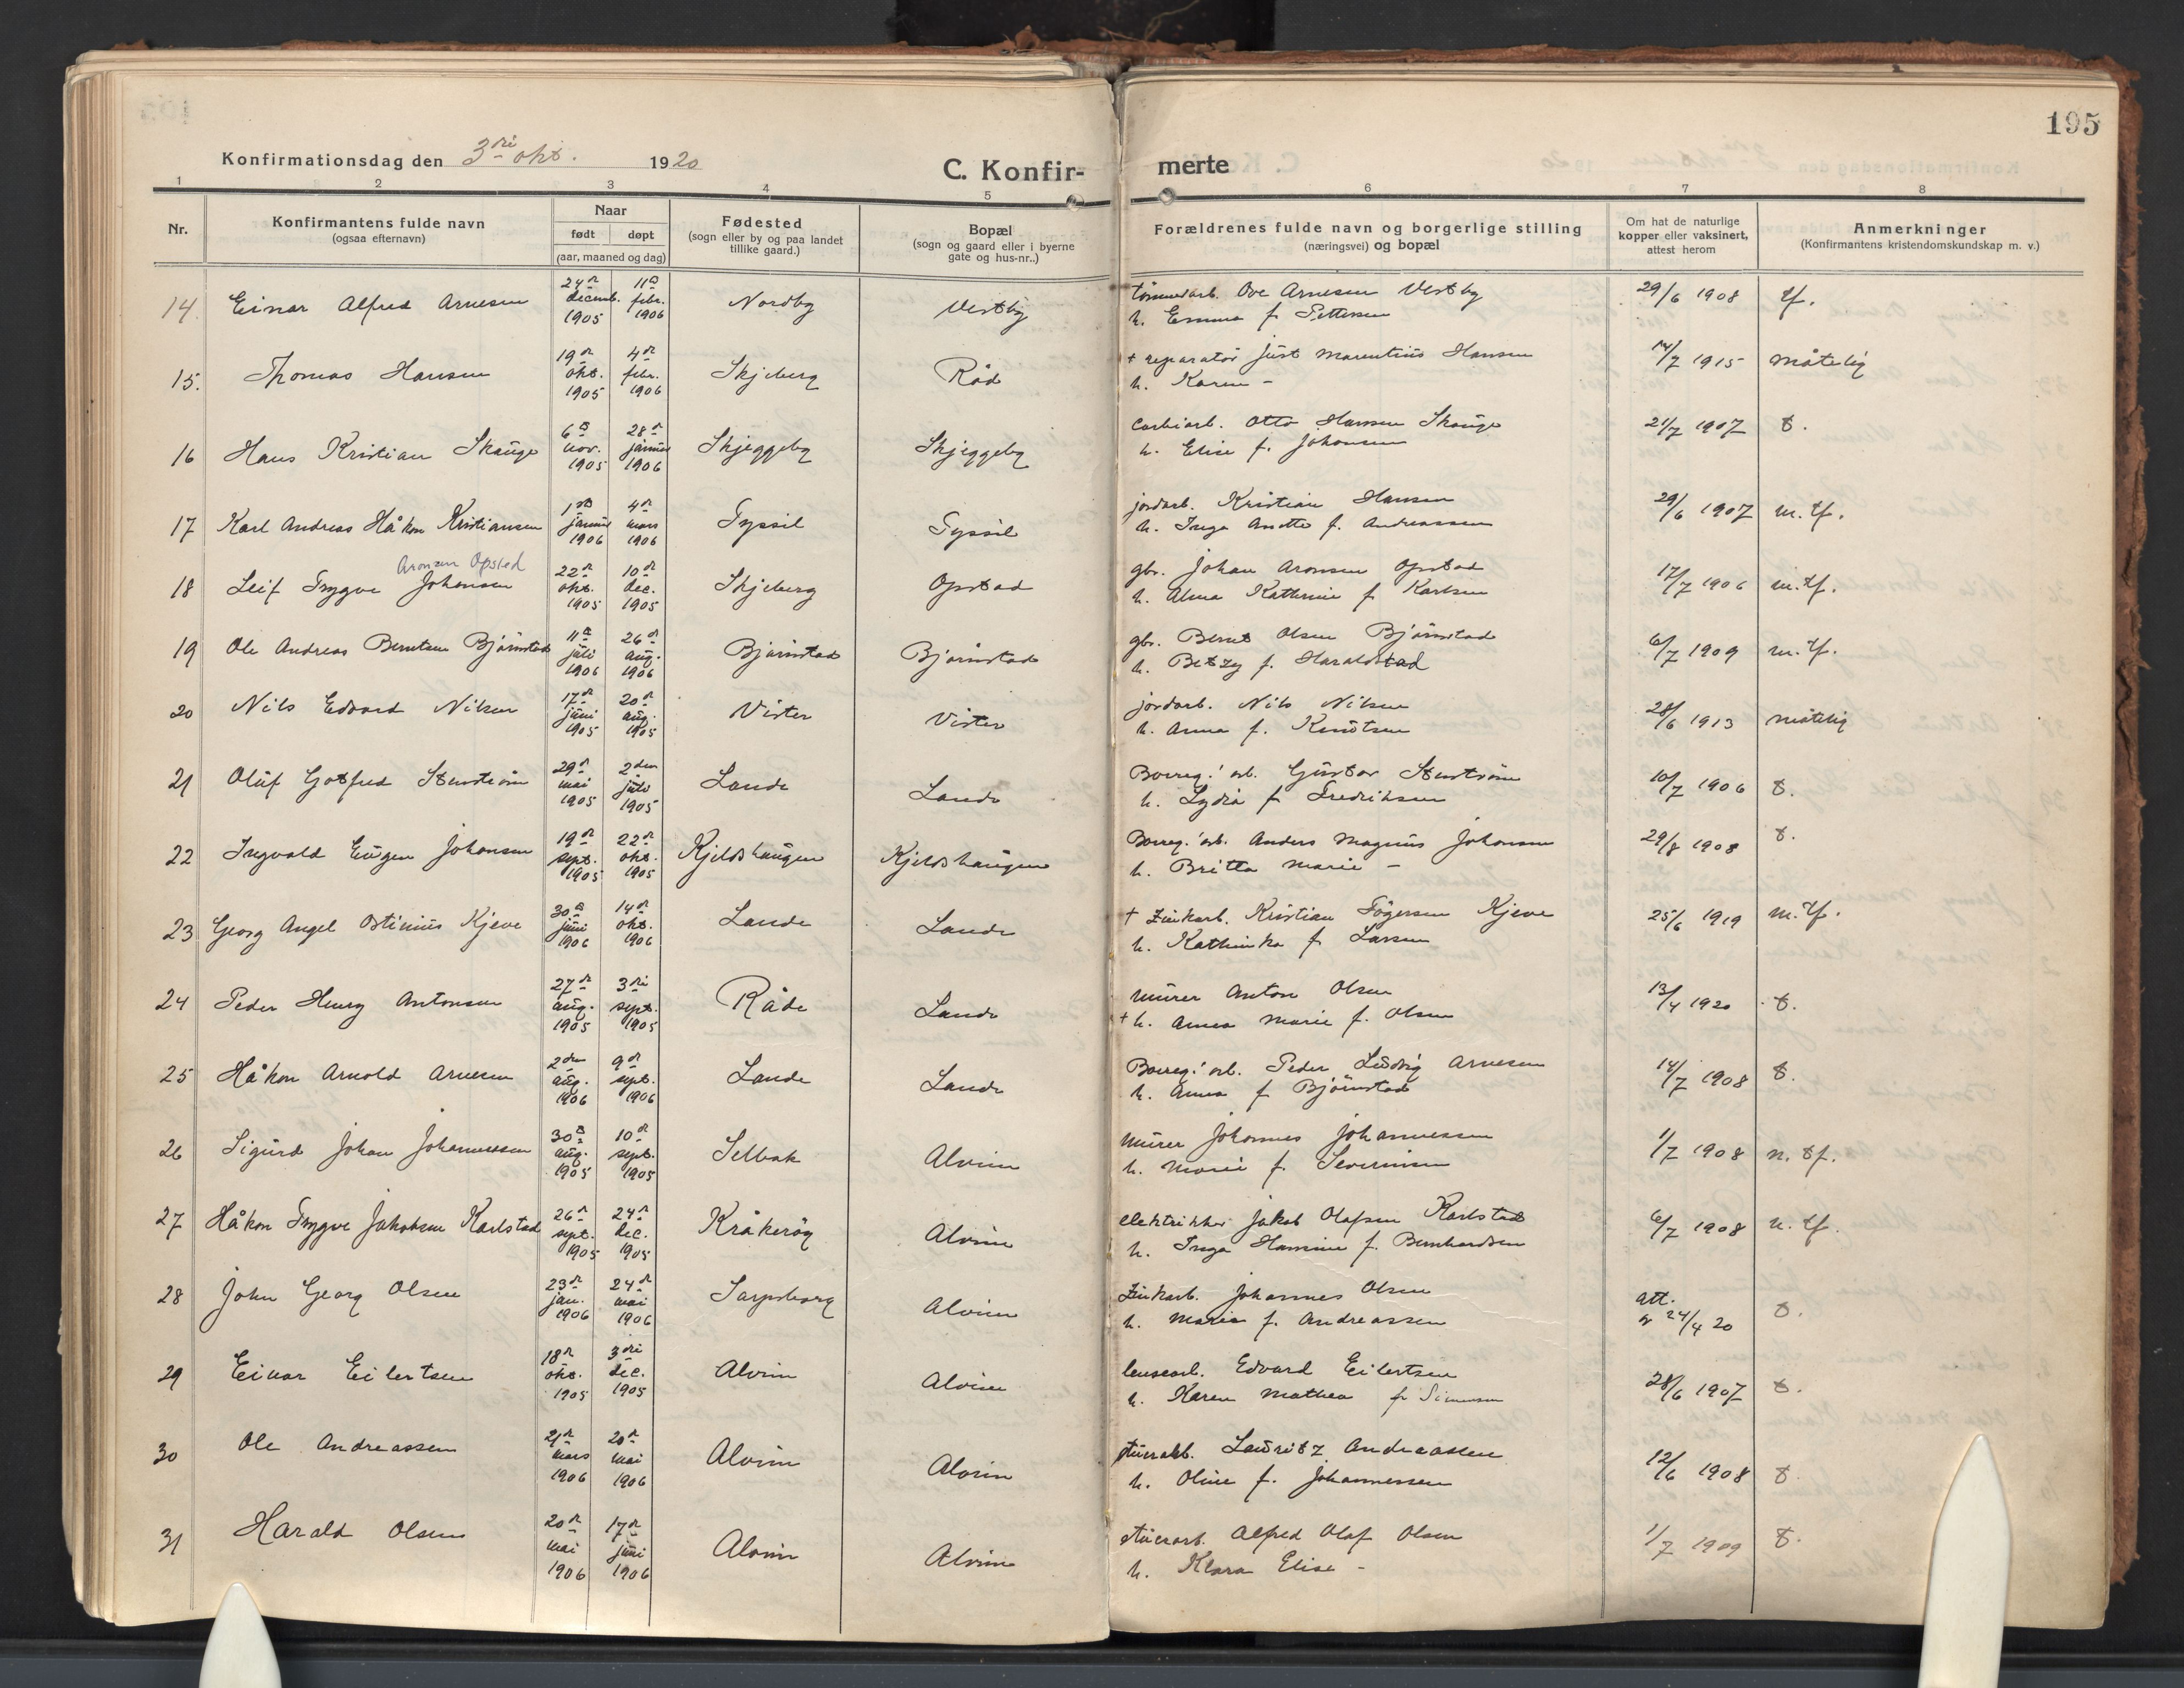 195
Konfirmationsdag den 3die okt. 1920
C. Konfir- merte
1 2 3 4 5 6 7 8
Nr.
Konfirmantens fulde navn
(ogsaa efternavn)
Naar
født døpt
(aar, maaned og dag)
Fødested
(sogn eller by og paa landet
tillike gaard.)
Bopæl
(sogn og gaard eller i byerne
gate og hus-nr..)
Forældrenes fulde navn og borgerlige stilling
(næringsvei) og bopæl
Om hat de naturlige
kopper eller vaksinert,
attest herom
Anmerkninger
(Konfirmantens kristendomskundskap m. v.)
14. Einar Alfred Arnesen 24de decemb. 1905 11te febr. 1906 Nordby Vestby
tømmerarb. Ove Arnesen Vestby
h. Emma f. Pettersen
29/6 1908 tf.
15. Thomas Hansen 19de okt. 1905 4de febr. 1906 Skjeberg Råd
+ reparatør Just Marentius Hansen
h. Karen -
14/7 1915 måtelig
16 Hans Kristian Skauge 6te nov. 1905 28de januar 1906 Skjeggeby Skjeggeby
carbiarb. Otto Hansen Skauge
h. Elise f. Johansen
21/7 1907 t.
17 Karl Andreas Håkon Kristiansen 1ste januar 1906 4de mars 1906 Tyssil Tyssil
jordarb. Kristian Hansen
h. Inga Anette f. Andreassen
29/6 1907 m. tf.
Aronsen Opsted
18 Leif Trygve Johansen 22de okt. 1905 10de dec. 1905 Skjeberg Opstad
gbr. Johan Aronsen Opstad
h. Alma Kathrine f. Karlsen
17/7 1906 m. tf.
19 Ole Andreas Berntsen Bjørnstad 11te juli 1906 26de aug. 1906 Bjørnstad Bjørnstad
gbr. Bernt Olsen Bjørnstad
h. Betzy f. Haraldstad
6/7 1909 m. tf.
20 Nils Edvard Nilsen 17de juni 1905 20de aug. 1905 Vister Vister
jordarb. Nils Nilsen
h. Anna f. Knudtsen
28/6 1913 måtelig
21 Oluf Gotfred Stenström 29de mai 1905 2den juli 1905 Lande Lande
Borreg.' arb. Gustav Stenström
h. Lydia f. Fredriksen
10/7 1906 t.
22 Ingvald Eugen Johansen 19de sept. 1905 22de okt. 1905 Kjeldshaugen Kjeldshaugen
Borreg.' arb. Anders Magnus Johansen
h. Britta Marie -
29/8 1908 t.
23 Georg Angel Ostinius Kjeve 30te juni 1906 14de okt. 1906 Lande Lande
+ Zinkarb. Kristian Kjeve
h. Kathinka f. Larsen
25/6 1919 m. tf.
24 Peder Henry Antonsen 27de aug. 1905 3die sept. 1905 Råde Lande
murer Anton Olsen
+ h. Anna Marie f. Olsen
13/4 1920 t.
25 Håkon Arnold Arnesen 2den aug. 1906 9de sept. 1906 Lande Lande
Borreg.' arb. Peder Ludvig Arnesen
h. Anna f. Bjørnstad
14/7 1908 t.
26 Sigurd Johan Johannessen 30te aug. 1905 10de sept. 1905 Selbak Alvim
murer Johannes Johannessen
h. Marie f. Severinsen
1/7 1908 n. tf.
27 Håkon Trygve Jakobsen Karlstad 26de sept. 1905 24de dec. 1905 Kråkerøy Alvim
elektriker Jakob Olafsen Karlstad
h. Inga Hansine f. Bernhardsen
6/7 1908 n. tf.
28 John Georg Olsen 23de jan. 1906 24de mai 1906 Sarpsborg Alvim
Zinkarb. Johannes Olsen
h. Maria f. Andreassen
att. 24/4 20 t.
29 Einar Eilertsen 18de okt. 1905 3die dec. 1905 Alvim Alvim
lensearb. Edvard Eilertsen
h. Karen Mathea f. Simensen
28/6 1907 t.
30 Ole Andreassen 21de mars 1906 20de mai 1906 Alvim Alvim
stuerarb. Lauritz Andreassen
h. Oline f. Johannessen
12/6 1908 t.
31 Harald Olsen 20de mai 1906 17de juni 1906 Alvim Alvim
stuerarb. Alfred Olaf Olsen
h. Klara Elise -
1/7 1909 t.